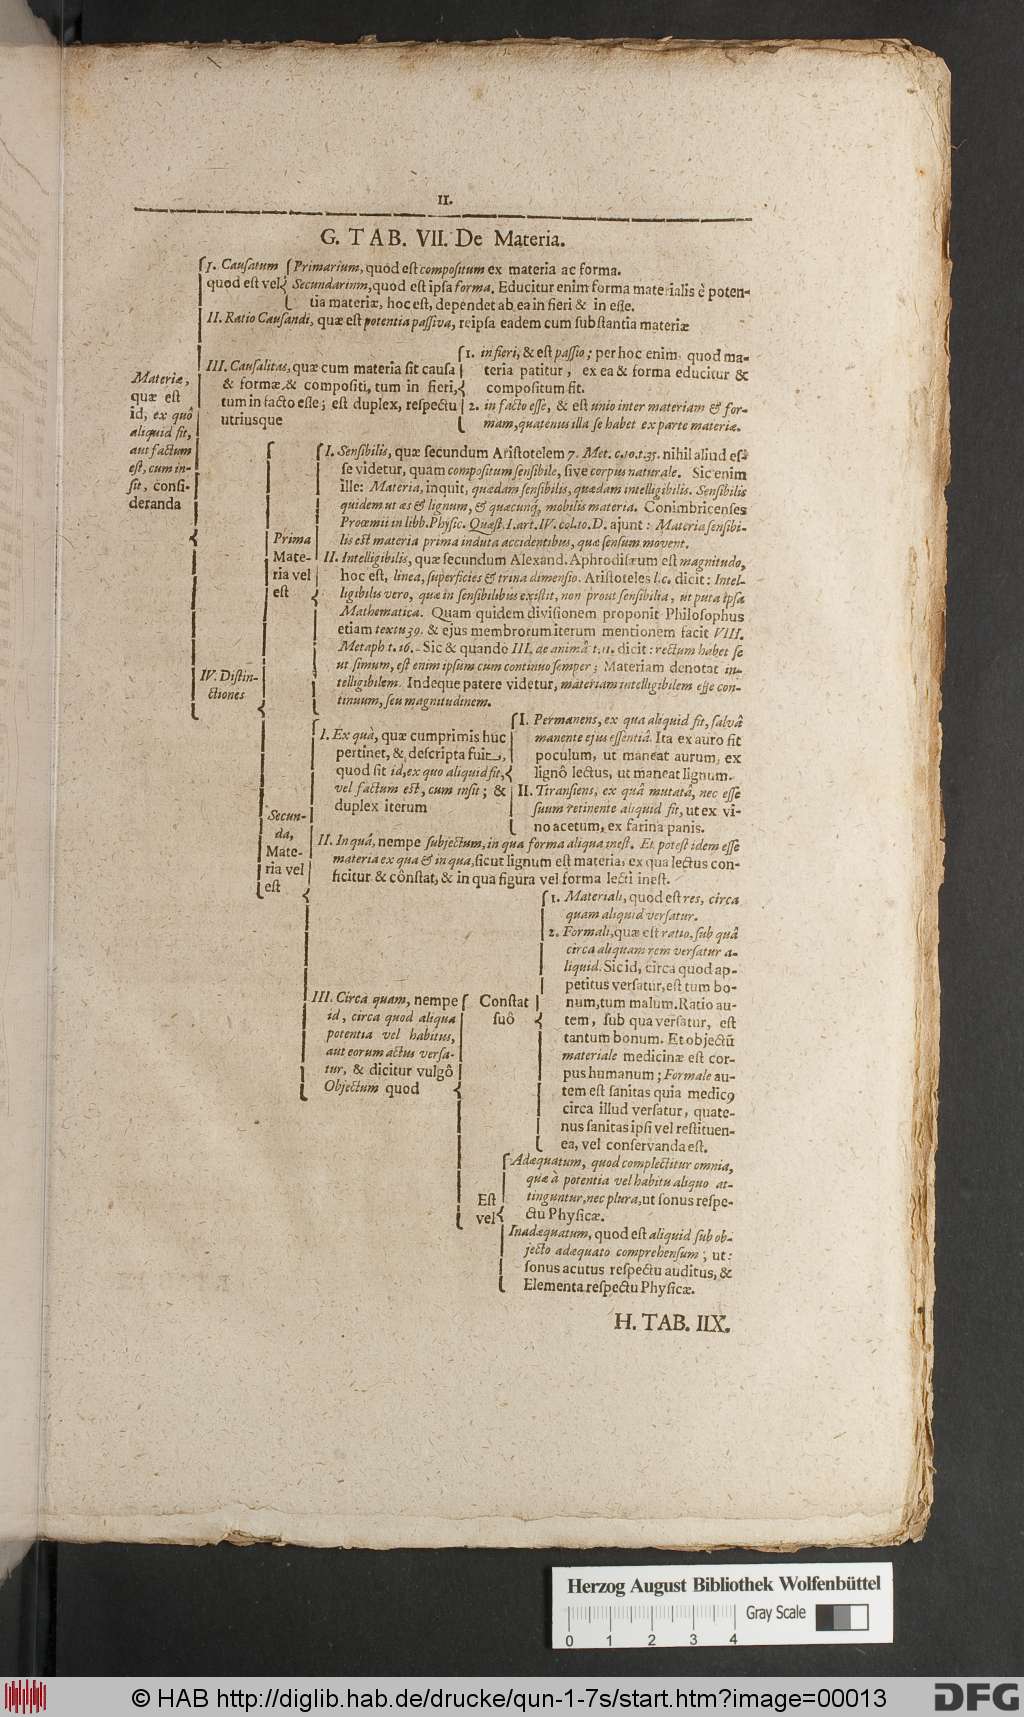 II.
G. TAB. VII. De Materia.
Materiæ,
quæ est
id, ex quô
aliquid fit,
aut factum
est, cum in-
sit, consi-
deranda
I. Causatum
quod est vel
Primarium, quod est compositum ex materia ac forma.
Secundarium, quod est ipsa forma. Educitur enim forma materialis è poten-
tia materiæ, hoc est, dependet ab ea in fieri & in esse.
II. Ratio Causandi, quæ est potentia passiva, reipsa eadem cum substantia materiæ
III. Causalitas, quæ cum materia sit causa
& formæ & compositi, tum in fieri,
tum in facto esse; est duplex, respectu
utriusque
1. in fieri, & est passio; per hoc enim quod ma-
teria patitur, ex ea & forma educitur &
compositum fit.
2. in facto esse, & est unio inter materiam & for-
mam, quatenus illa se habet ex parte materiæ.
IV. Distin-
ctiones
Prima
Mate-
ria vel
est
I. Sensibilis, quæ secundum Aristotelem 7. Met. c. 10. t. 35. nihil aliud es-
se videtur, quam compositum sensibile, sive corpus naturale. Sic enim
ille: Materia, inquit, quædam sensibilis, quædam intelligibilis. Sensibilis
quidem ut æs & lignum, & quæcunq́, mobilis materia. Conimbricenses
Proœmii in libb. Physic. Quæst. I. art. IV. col. 10. D. ajunt: Materia sensibi-
lis est materia prima induta accidentibus, quæ sensum movent.
II. Intelligibilis, quæ secundum Alexand. Aphrodisæum est magnitudo,
hoc est, linea, superficies & trina dimensio. Aristoteles l. c. dicit: Intel-
ligibilis vero, quæ in sensibilibus existit, non prout sensibilia, ut puta ipsa
Mathematica. Quam quidem divisionem proponit Philosophus
etiam textu 39. & ejus membrorum iterum mentionem facit VIII.
Metaph t. 16. Sic & quando III. de animâ t. 11. dicit: rectum habet se
ut simum, est enim ipsum cum continuo semper; Materiam denotat in-
telligibilem. Indeque patere videtur, materiam intelligibilem esse con-
tinuum, seu magnitudinem.
Secun-
da,
Mate-
ria vel
est
I. Ex quâ, quæ cumprimis huc
pertinet, & descripta fuit,
quod sit id, ex quo aliquid fit,
vel factum est, cum insit; &
duplex iterum
I. Permanens, ex qua aliquid fit, salvâ
manente ejus essentiâ. Ita ex auro fit
poculum, ut maneat aurum, ex
lignô lectus, ut maneat lignum.
II. Transiens, ex quâ mutatâ, nec esse
suum retinente aliquid fit, ut ex vi-
no acetum, ex farina panis.
II. In quâ, nempe subjectum, in qua forma aliqua inest. Et potest idem esse
materia ex qua & in qua, sicut lignum est materia, ex qua lectus con-
ficitur & constat, & in qua figura vel forma lecti inest.
III. Circa quam, nempe
id, circa quod aliqua
potentia vel habitus,
aut eorum actus versa-
tur, & dicitur vulgô
Objectum quod
Constat
suô
1. Materiali, quod est res, circa
quam aliquid versatur.
2. Formali, quæ est ratio, sub quâ
circa aliquam rem versatur a-
liquid. Sic id, circa quod ap-
petitus versatur, est tum bo-
num, tum malum. Ratio au-
tem, sub qua versatur, est
tantum bonum. Et objectũ
materiale medicinæ est cor-
pus humanum; Formale au-
tem est sanitas quia medicꝰ
circa illud versatur, quate-
nus sanitas ipsi vel restituen-
ea, vel conservanda est.
Est
vel
Adæquatum, quod complectitur omnia,
quæ à potentia vel habitu aliquo at-
tinguntur, nec plura, ut sonus respe-
ctu Physicæ.
Inadæquatum, quod est aliquid sub ob-
jecto adæquato comprehensum; ut:
sonus acutus respectu auditus, &
Elementa respectu Physicæ.
H. TAB. IIX.
Herzog August Bibliothek Wolfenbüttel
Gray Scale
0 1 2 3 4
© HAB http://diglib.hab.de/drucke/qun-1-7s/start.htm?image=00013
DFG